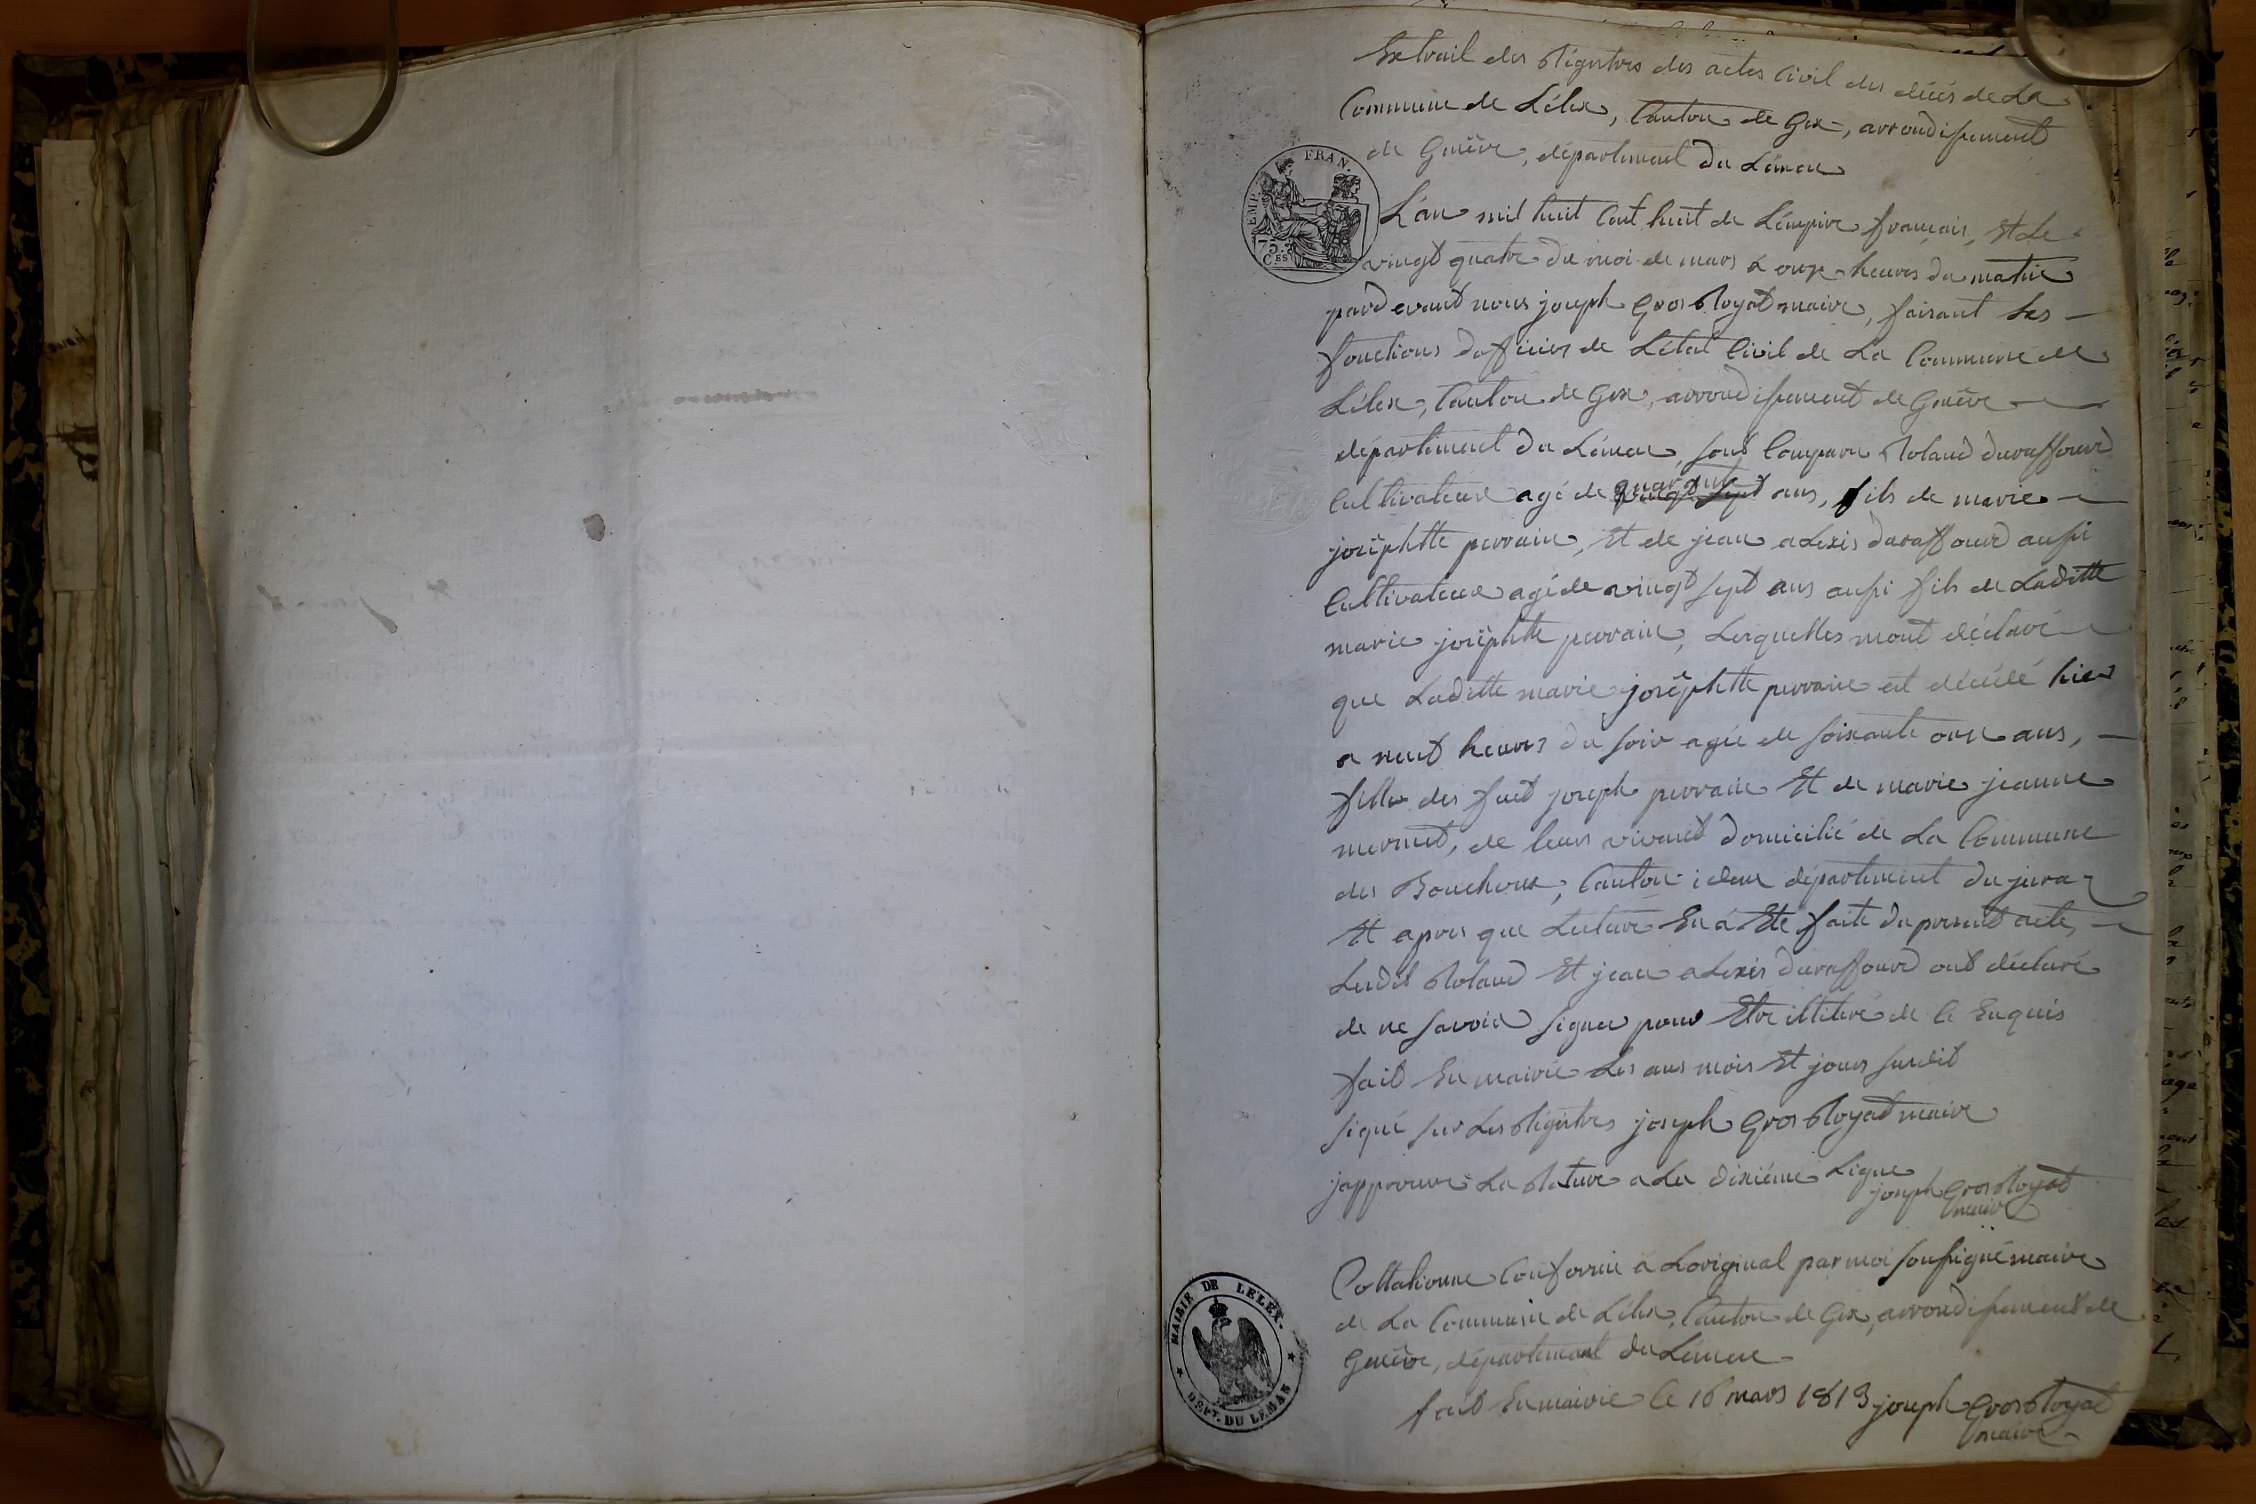 Extrait des Régistres des actes Civil des décés de La
Commune de Lélex, Canton de Gex, arrondissement
de Genève, département du Léman
EMP. FRAN.
75
CES
L'an mil huit Cent huit de L'émpire français, Et Le
vingt quatre du moi de mars a onze heures du matin
pard evant nous joseph Gros Royat maire, faisant Les
fonctions dofficier de L'état Civil de La Commune de
Lélex, Canton de Gex, arrondissement de Genève
département du Léman, sont Comparu Roland duraffourd
quarante
Cultivateur agé de vingt sept ans, fils de marie
joséphtte perrain, Et de jean aLexis duraffourd aussi
Cultivateur agé de vingt sept ans aussi fils de Laditte
marie joséphtte perrain, Lesquelles mont déclaré
que Laditte marie joséphtte perrain est décédé hier
a neuf heures du soir agée de soixante onze ans,
fille des fuet joseph perrain Et de marie jeanne
mermet, de leurs vivant domicilié de La Commune
des Bouchoux, Canton idem département du jura
Et apres que Lecture En a Eté faite du present acte,
Lesdit Roland Et jean aLexis duraffourd ont déclaré
de ne savoir signer pour Etre illiteré de Ce Enquis
fait En mairie Les ans mois Et jours susdit
signé sur Les Régistres joseph Gros Royat maire
japprouve La Rature a La dixiéme Ligne
joseph Gros Royat
maire
Collationné Conforme a Loriginal par moi soussigné maire
de La Commune de Lélex, Canton de Gex, arrondissement de
Genève, département du Léman
fait En mairie le 16 mars 1813 joseph Gros Royat
maire
MAIRIE DE LELEX.
DEPT. DU LEMAN